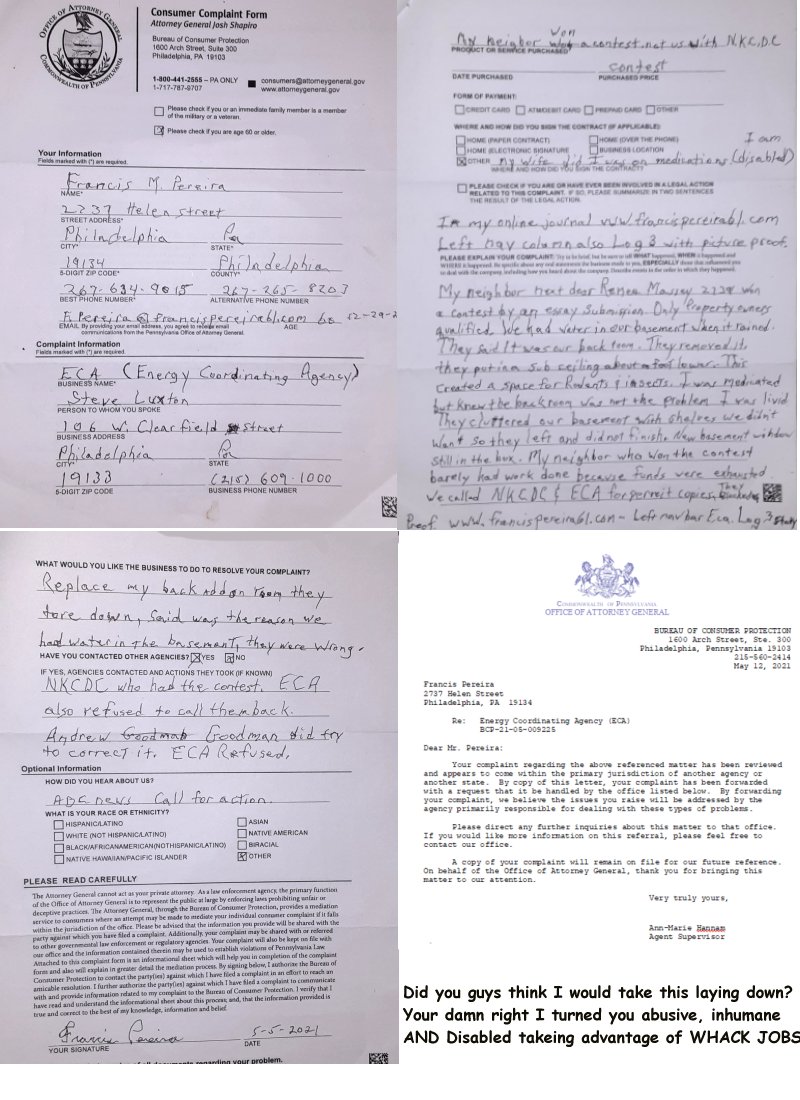 OFFICE OF ATTORNEY GENERAL
COMMONWEALTH OF PENNSYLVANIA
Consumer Complaint Form
Attorney General Josh Shapiro
Bureau of Consumer Protection
1600 Arch Street, Suite 300
Philadelphia, PA 19103
1-800-441-2555 – PA ONLY
1-717-787-9707
consumers@attorneygeneral.gov
www.attorneygeneral.gov
Please check if you or an immediate family member is a member
of the military or a veteran.
Please check if you are age 60 or older.
Your Information
Fields marked with (*) are required.
Francis M. Pereira
NAME*
2237 Helen street
STREET ADDRESS*
Philadelphia Pa
CITY* STATE*
19134 Philadelphia
5-DIGIT ZIP CODE* COUNTY*
267-634-9015 267-265-8203
BEST PHONE NUMBER* ALTERNATIVE PHONE NUMBER
F.Pereira@francispereirabl.com 60
EMAIL By providing your email address, you agree to receive email AGE
communications from the Pennsylvania Office of Attorney General.
Complaint Information
Fields marked with (*) are required.
ECA (Energy Coordinating Agency)
BUSINESS NAME*
Steve Luxton
PERSON TO WHOM YOU SPOKE
106 W. Clearfield Street
BUSINESS ADDRESS
Philadelphia Pa
CITY* STATE
19133 (215) 609-1000
5-DIGIT ZIP CODE BUSINESS PHONE NUMBER
My neighbor won a contest not us with NKCDC
PRODUCT OR SERVICE PURCHASED
contest
DATE PURCHASED PURCHASED PRICE
FORM OF PAYMENT:
CREDIT CARD ATM/DEBIT CARD PREPAID CARD OTHER
WHERE AND HOW DID YOU SIGN THE CONTRACT (IF APPLICABLE):
HOME (PAPER CONTRACT) HOME (OVER THE PHONE)
HOME (ELECTRONIC SIGNATURE BUSINESS LOCATION
OTHER My wife did I was on medications I am (disabled)
WHERE AND HOW DID YOU SIGN THE CONTRACT?
PLEASE CHECK IF YOU ARE OR HAVE EVER BEEN INVOLVED IN A LEGAL ACTION
RELATED TO THIS COMPLAINT. IF SO, PLEASE SUMMARIZE IN TWO SENTENCES
THE RESULT OF THE LEGAL ACTION.
In my online journal www.francispereirabl.com
Left nav column also Log 3 with picture proof.
PLEASE EXPLAIN YOUR COMPLAINT:
My neighbor next door Renee Massey 2239 won
a contest by an essay Submission. Only Property owners
qualified. We had water in our basement when it rained.
They said It was our back room. They removed it,
they put in a sub ceiling about a foot lower. This
created a space for Rodents & insects. I was medicated
but knew the backroom was not the problem I was livid
They cluttered our basement with shelves we didn't
want so they left and did not finish. New basement window
still in the box. My neighbor who won the contest
barely had work done because funds were exhausted.
We called NKCDC & ECA for permit copies, They
Proof www.francispereirabl.com - Left nav bar Eca. Log 3
WHAT WOULD YOU LIKE THE BUSINESS TO DO TO RESOLVE YOUR COMPLAINT?
Replace my back addon room they
tore down, Said was the reason we
had water in the basement, they were wrong.
HAVE YOU CONTACTED OTHER AGENCIES? YES NO
IF YES, AGENCIES CONTACTED AND ACTIONS THEY TOOK (IF KNOWN)
NKCDC who had the contest. ECA
also refused to call them back.
Andrew Goodman did try
to correct it. ECA Refused.
Optional Information
HOW DID YOU HEAR ABOUT US?
ABC news Call for action.
WHAT IS YOUR RACE OR ETHNICITY?
HISPANIC/LATINO ASIAN
WHITE (NOT HISPANIC/LATINO) NATIVE AMERICAN
BLACK/AFRICAN AMERICAN (NOT HISPANIC/LATINO) BIRACIAL
NATIVE HAWAIIAN/PACIFIC ISLANDER OTHER
PLEASE READ CAREFULLY
The Attorney General cannot act as your private attorney. As a law enforcement agency, the primary function
of the Office of Attorney General is to represent the public at large by enforcing laws prohibiting unfair or
deceptive practices. The Attorney General, through the Bureau of Consumer Protection, provides a mediation
service to consumers where an attempt may be made to mediate your individual consumer complaint if it falls
within the jurisdiction of the office. Please be advised that the information you provide will be shared with the
party against which you have filed a complaint. Additionally, your complaint may be shared with or referred
to other governmental law enforcement or regulatory agencies. Your complaint will also be kept on file with
our office and the information contained therein may be used to establish violations of Pennsylvania Law.
Attached to this complaint form is an informational sheet which will help you in completion of the complaint
form and also will explain in greater detail the mediation process. By signing below, I authorize the Bureau of
Consumer Protection to contact the party(ies) against which I have filed a complaint in an effort to reach an
amicable resolution. I further authorize the party(ies) against which I have filed a complaint to communicate
with and provide information related to my complaint to the Bureau of Consumer Protection. I verify that I
have read and understand the informational sheet about this process; and, that the information provided is
true and correct to the best of my knowledge, information and belief.
Francis Pereira 5-5-2021
YOUR SIGNATURE DATE
documents regarding your problem.
COMMONWEALTH OF PENNSYLVANIA
OFFICE OF ATTORNEY GENERAL
BUREAU OF CONSUMER PROTECTION
1600 Arch Street, Ste. 300
Philadelphia, Pennsylvania 19103
215-560-2414
May 12, 2021
Francis Pereira
2737 Helen Street
Philadelphia, PA 19134
Re: Energy Coordinating Agency (ECA)
BCP-21-05-009225
Dear Mr. Pereira:
Your complaint regarding the above referenced matter has been reviewed
and appears to come within the primary jurisdiction of another agency or
another state. By copy of this letter, your complaint has been forwarded
with a request that it be handled by the office listed below. By forwarding
your complaint, we believe the issues you raise will be addressed by the
agency primarily responsible for dealing with these types of problems.
Please direct any further inquiries about this matter to that office.
If you would like more information on this referral, please feel free to
contact our office.
A copy of your complaint will remain on file for our future reference.
On behalf of the Office of Attorney General, thank you for bringing this
matter to our attention.
Very truly yours,
Ann-Marie Hannam
Agent Supervisor
Did you guys think I would take this laying down?
Your damn right I turned you abusive, inhumane
AND Disabled takeing advantage of WHACK JOBS